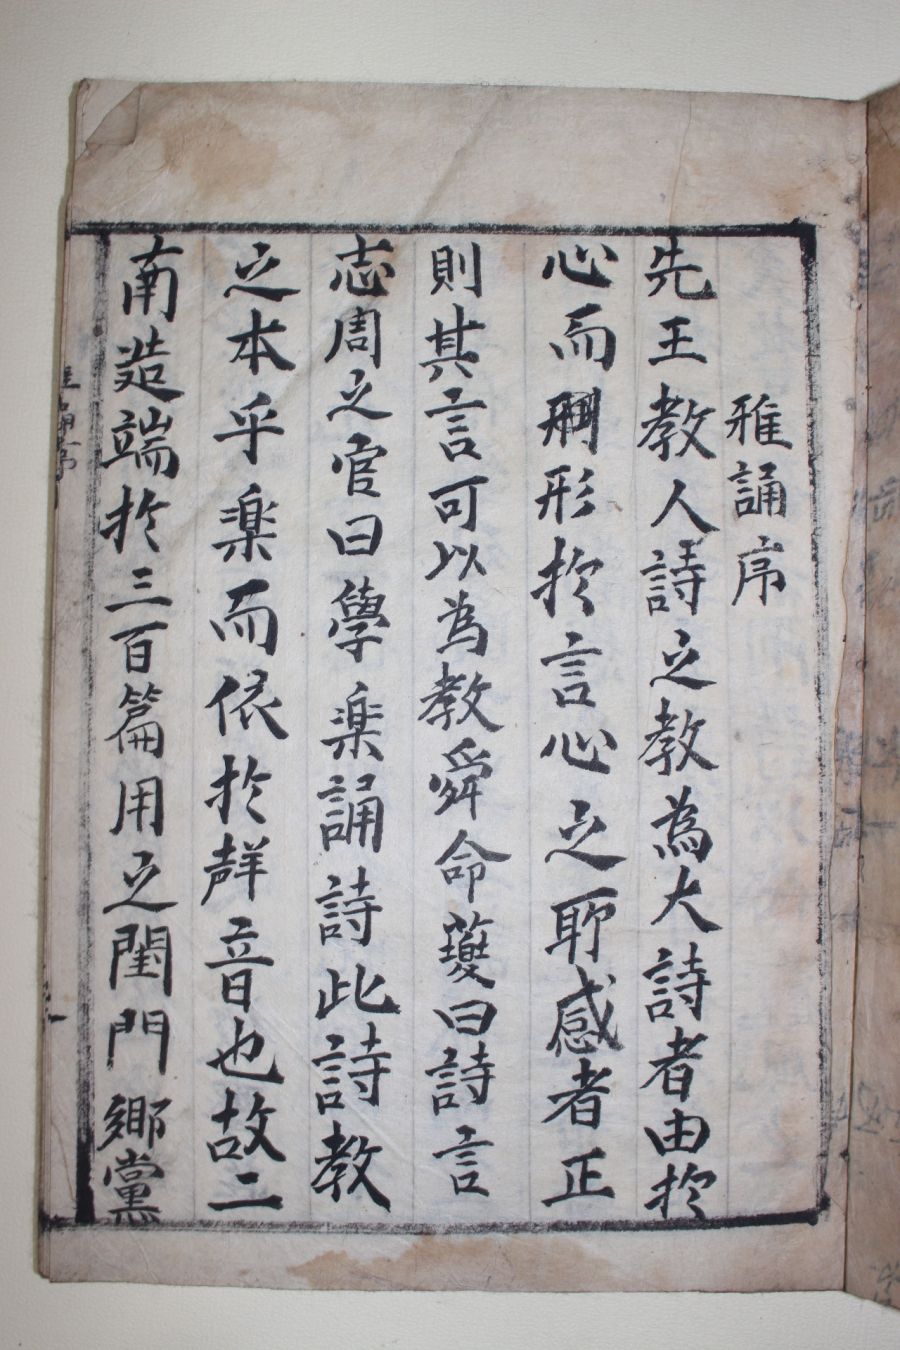 雅誦序
先王教人詩之教為大詩者由於
心而形於言心之所感者正
則其言可以為教舜命夔曰詩言
志周之官曰學楽誦詩此詩教
之本乎楽而依於聲音也故二
南造端於三百篇用之閨門鄉黨